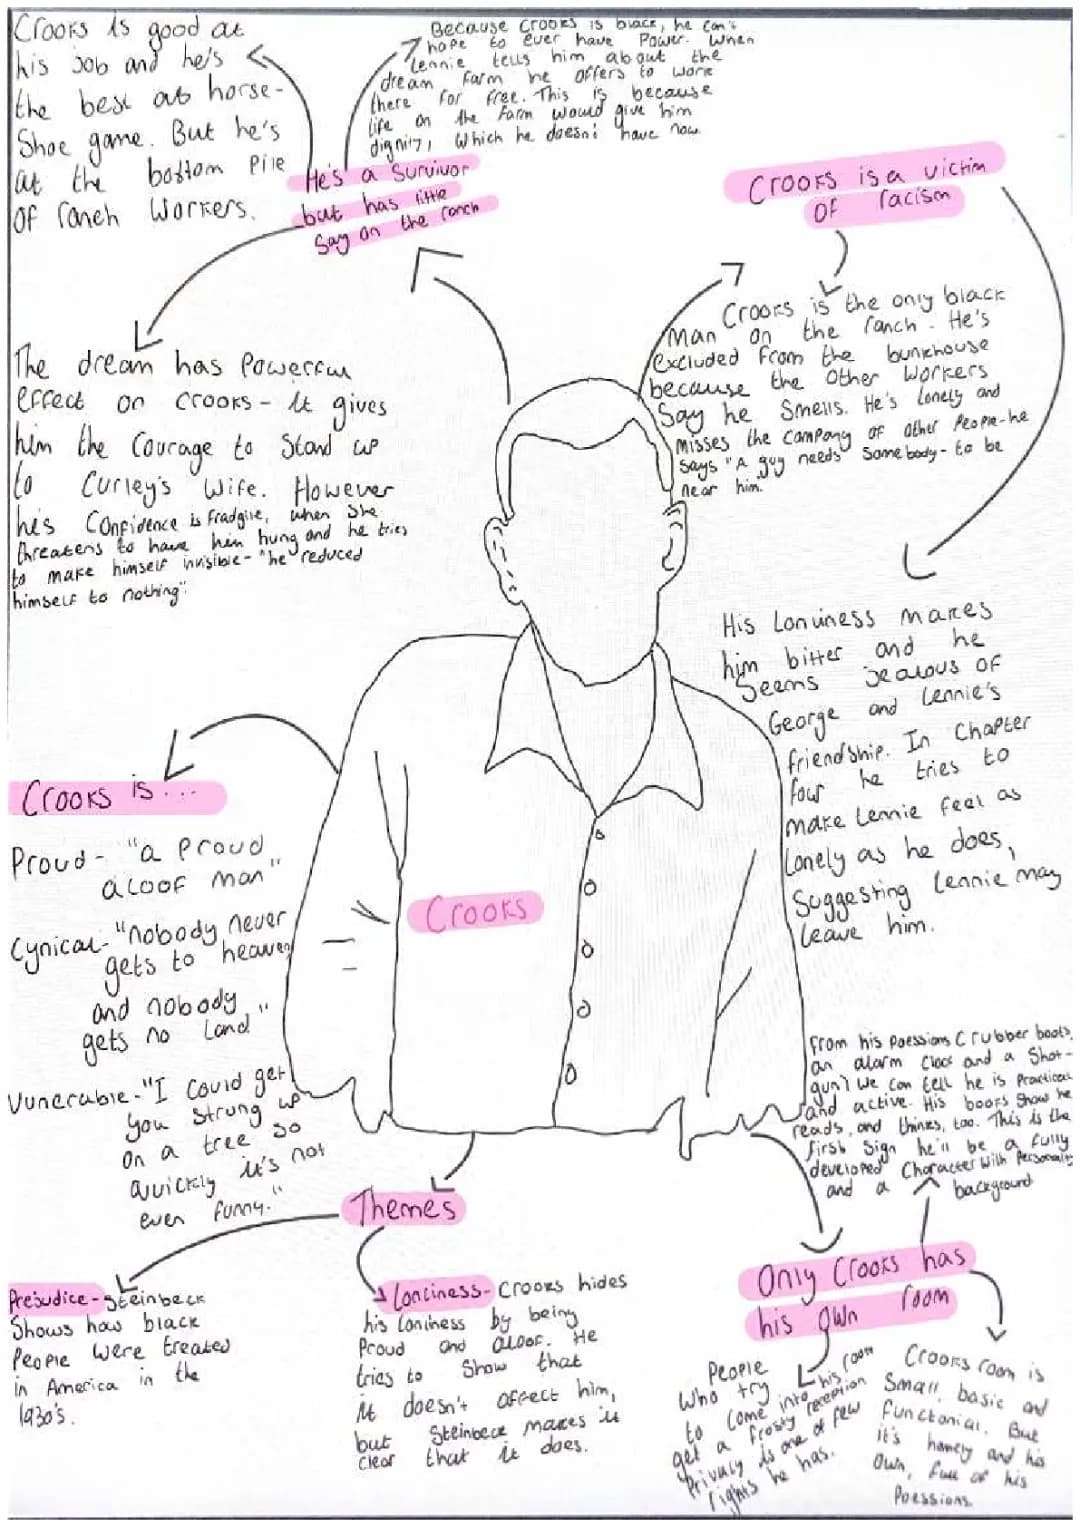 Crooks is good at
his job and he's
the best at horse-
Shoe game. But he's
at the bottom Pile
of ranch workers.
Because Crooks is black, he can't
hope to ever have Power. When
Lennie tells him about the
dream farm he offers to work
there for free. This is because
life on the farm would give him
dignity, which he doesn't have now.
He's a Survivor
but has little
Say on the ranch
Crooks is a victim
of racism
Crooks is the only black
man on the ranch. He's
excluded from the bunkhouse
because the other workers
Say he Smells. He's lonely and
misses the company of other People-he
says "A guy needs Somebody- to be
near him.
The dream has Powerful
effect on Crooks- it gives
him the Courage to Stand up
to Curley's Wife. However
he's Confidence is fradgile, when She
threatens to have him hung and he tries
to make himself invisible- "he reduced
himself to nothing".
His Lonliness makes
him bitter and he
Seems Jealous of
George and Lennie's
friendship. In Chapter
four he tries to
make Lennie feel as
Lonely as he does,
Suggesting Lennie may
leave him.
Crooks is...
Proud- "a Proud
aloof man"
Cynical- "nobody never
gets to heaven
and nobody
gets no Land"
Vunerable- "I Could get
you Strung up
on a tree so
quickly it's not
even funny."
Crooks
From his Poessions (rubber boots,
an alarm Clock and a Shot-
gun) we can tell he is Practical
and active. His books Show he
reads, and thinks, too. This is the
first Sign he'll be a fully
developed Character with Personality
and a background
Themes
Prejudice- Steinbeck
Shows how black
People were treated
in America in the
1930's.
Lonliness- Crooks hides
his Lonliness by being
Proud and aloof. He
tries to Show that
it doesn't affect him,
but Steinbeck makes it
clear that it does.
Only Crooks has
his own room
People
who try
to come into his room
get a frosty reception
Privacy is one of few
rights he has.
Crooks room is
Small, basic and
functonial. But
it's homely and his
own, full of his
Poessions.